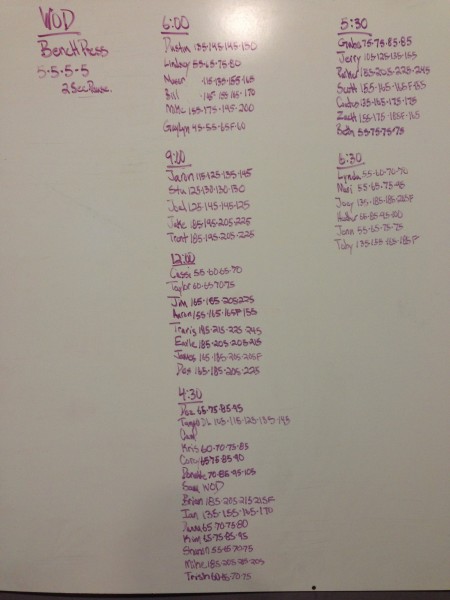 WOD
Bench Press
5-5-5-5
2 Sec Pause.
6:00
Dustin 135-145-145-150
Lindsay 55-65-75-80
115-135-155-165
Bill
Mike 155-175-195-200
45-55-65F-60
9:00
Jaron 115-125-135-145
Stu 125-130-130-130
Joel 125-145-145-125
Jake 185-195-205-225
Trent 185-195-205-225
12:00
Cassi 55-60-65-70
Taylor 60-65-70-75
Jim 165-185-205-225
Aaron 155-165-165F-155
Travis 185-215-225-245
Earle 185-205-205-215
James 165-185-205-205F
Dax 165-185-205-225
4:30
65-75-85-95
105-115-125-135-145
Kris 60-70-75-85
Cory 65-75-85-90
70-85-95-105
WOD
Brian 185-205-215-215F
Ian 135-155-165-170
65-70-75-80
Kim 65-75-85-95
Sharon 55-65-70-75
Mike 185-205-215-205
Trish 60-65-70-75
5:30
Gabe 75-75-85-85
Jerry 105-125-135-155
Parker 185-205-225-245
Scott 155-165-165F-135
135-165-175-175
Zach 155-175-185F-165
Beth 55-75-75-75
6:30
Lynda 55-60-70-70
55-65-75-95
Joey 135-185-185-205F
Heather 65-85-95-100
Jenn 55-65-75-75
Toby 135-155-185-185F